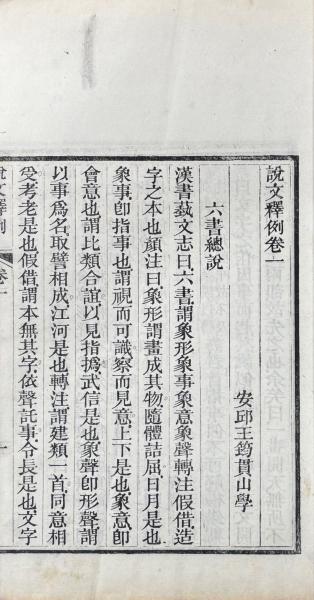 說文釋例卷一
安邱王筠貫山學
六書總說
漢書蓺文志曰六書謂象形象事象意象聲轉注假借造
字之本也顏注曰象形謂畫成其物隨體詰屈日月是也
象事卽指事也謂視而可識察而見意上下是也象意卽
會意也謂比類合誼以見指撝武信是也象聲卽形聲謂
以事爲名取譬相成江河是也轉注謂建類一首同意相
受考老是也假借謂本無其字依聲託事令長是也文字
說文釋例
卷一
一